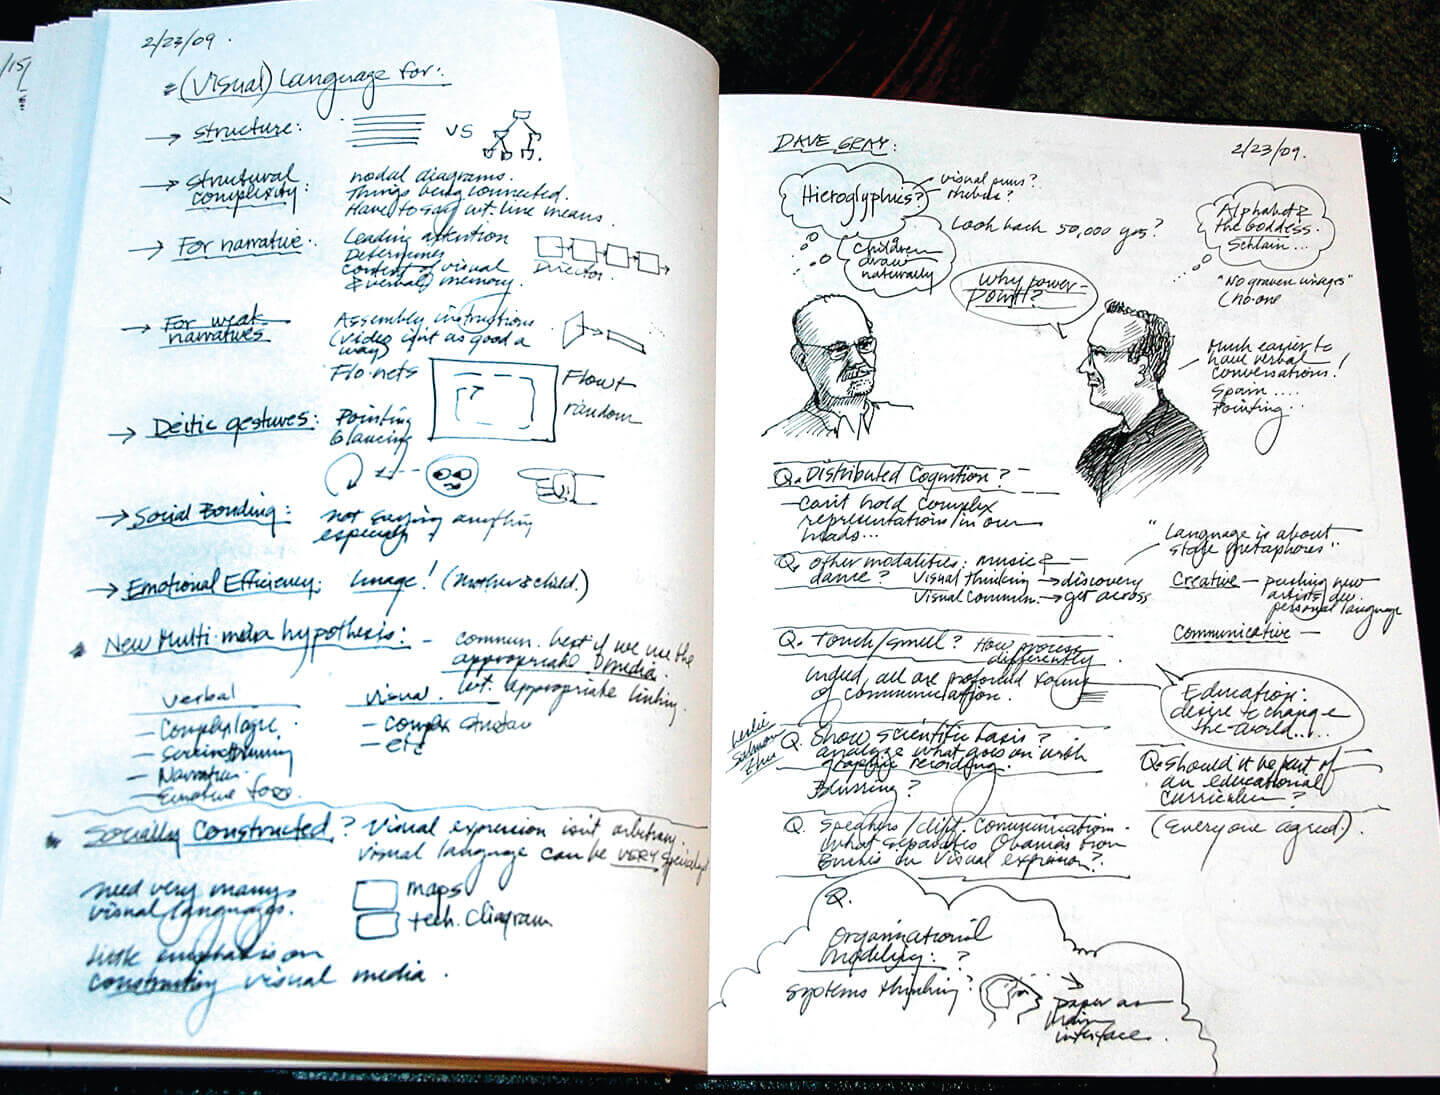 2/23/09.
(Visual) Language for:
→ Structure: VS
→ Structural complexity:
nodal diagrams.
Things being connected.
Have to say wt. line means.
→ For narrative:
Leading attention
Determines
content of visual
& verbal) memory.
Director.
→ For weak narratives
Assembly instructions
(video isn't as good a
way)
Flo-nets
Flow +
random
→ Deitic gestures:
Pointing
Glancing
→ Social Bonding:
not saying anything
especially
→ Emotional Efficiency: Image! (Mother & child.)
New Multi-media hypothesis: - commun. best if we use the
appropriate media.
wt. appropriate linking.
Verbal
- Complex logic
-
- Narration
- Emotive force.
Visual.
- Complex structure
- etc
Socially Constructed? Visual expression isn't arbitrary.
visual language can be VERY
need very many
visual languages.
maps
tech. diagram
little emphasis on
constructing visual media.
DAVE GRAY:
2/23/09.
Hieroglyphics?
visual puns?
rhebus?
Look back 50,000 yrs?
Children
draw
naturally
Alphabet &
the Goddess.
Schlain...
"No graven images"
(no-one
Why power-
point?
Much easier to
have verbal
conversations!
Spain....
Pointing...
Q. Distributed Cognition?
- Can't hold complex
representations/in our
heads...
Q. Other modalities: music &
dance? Visual thinking → discovery
Visual commun. → get across
"Language is about
stage metaphores"..
Creative - pushing new
artists dev.
personal language
Communicative -
Q. Touch/smell? How process
differently
Indeed, all are profound
of communication.
Education:
desire to change
the world.....
Leslie
Salmon
Zhu
Q. Show scientific basis?
analyze what goes on with
graphic recording.
Blurring?
Q. Should it be part of
an educational
curriculum?
(Everyone agreed).
Q. Speakers/diff. communication.
What separates Obamas from
Bushes in visual expression?
Q.
Organizational
modeling: ?
Systems thinking?
paper as
main
interface.